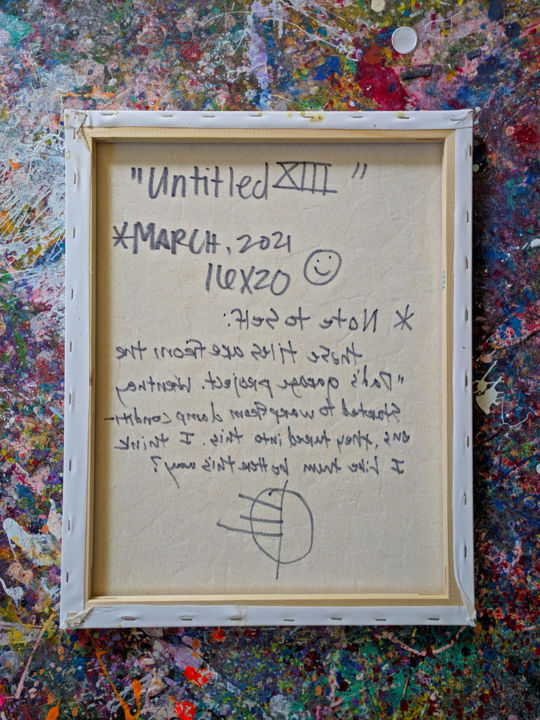 "Untitled XIII"
*MARCH, 2021
16X20
* Note to Self:
these tiles are from the
"Dad's garage project. When they
started to warp from damp conditi-
ons, they turned into this. I think
I like them better this way?